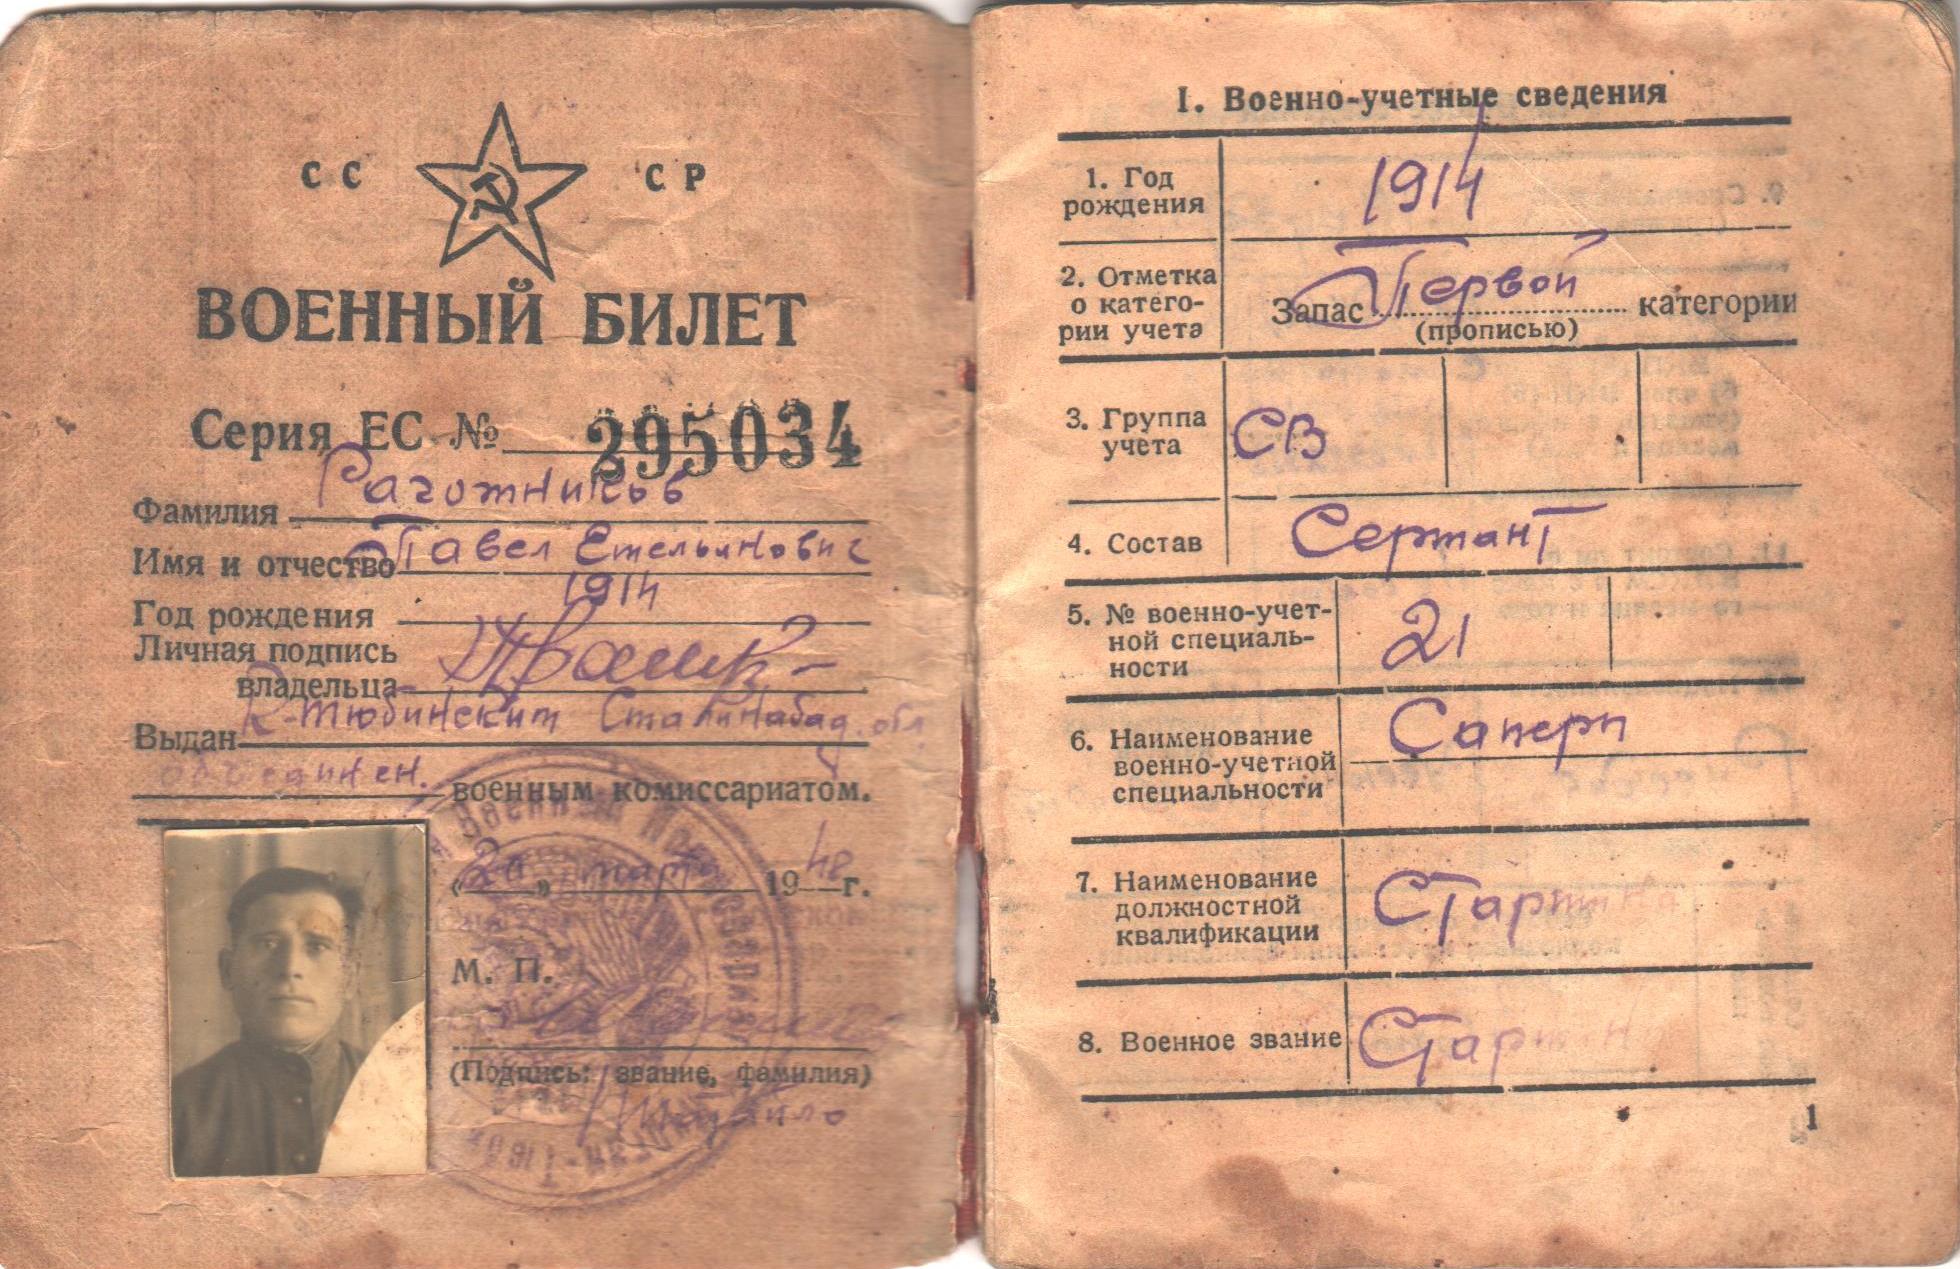 СС СР
ВОЕННЫЙ БИЛЕТ
Серия ЕС № 295034
Фамилия Рагожников
Имя и отчество Павел Емельянович
Год рождения 1914
Личная подпись
владельца
Выдан К-Тюбинским Сталинабад. обл.
объединен. военным комиссариатом.
«20» марта 1948 г.
М. П.
(Подпись: звание, фамилия)
I. Военно-учетные сведения
1. Год
рождения 1914
2. Отметка
о катего-
рии учета Запас Первой категории
(прописью)
3. Группа
учета СВ
4. Состав Сержант
5. № военно-учет-
ной специаль-
ности 21
6. Наименование
военно-учетной
специальности Саперн
7. Наименование
должностной
квалификации Старшина
8. Военное звание Старшина
1